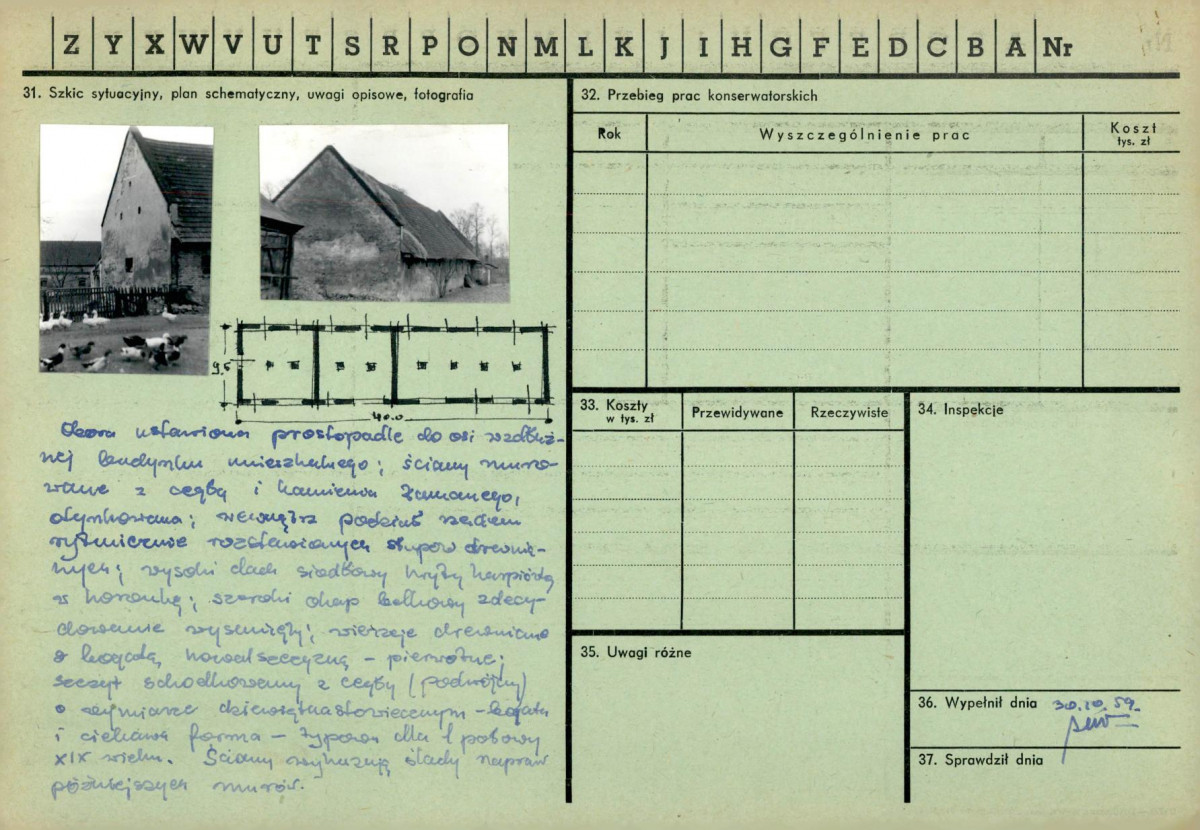 Z Y X W V U T S R P O N M L K J I H G F E D C B A Nr
31. Szkic sytuacyjny, plan schematyczny, uwagi opisowe, fotografia
9,5
40.0
Obora ustawiona prostopadle do osi wzdłuż-
nej budynku mieszkalnego; ściany muro-
wane z cegły i kamienia łamanego,
otynkowana; wewnątrz podział
rytmicznie rozstawionych słupów drewnia-
nych; wysoki dach siodłowy kryty karpiówką
w koronkę; szeroki okap belkowy zdecy-
dowanie wysunięty; wierzeje drewniane
z bogatą kowalszczyzną – pierwotne;
szczyt schodkowany z cegły (podwójny)
o wymiarze dziewiętnastowiecznym – bogata
i ciekawa forma – typowa dla 1 połowy
XIX wieku. Ściany wykazują ślady napraw
późniejszych murów.
32. Przebieg prac konserwatorskich
Rok Wyszczególnienie prac Koszt
tys. zł
33. Koszty
w tys. zł
Przewidywane
Rzeczywiste
34. Inspekcje
35. Uwagi różne
36. Wypełnił dnia 30.10.59.
37. Sprawdził dnia